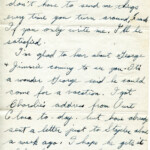 don't have to send me things
every time you turn around, Sweet
If you only write me, I'll be
satisfied.
I'm glad to hear about George &
Jimmie coming to see you. It's
a wonder George said he could
come for a vacation. I got
Charlie's address from Aunt
Clara to-day, but have always
sent a letter just to
a week ago. I hope he gets it